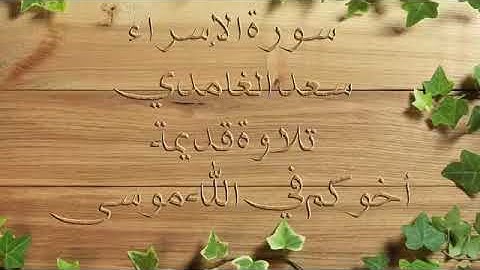 سورة الإسراء
سعد الغامدي
تلاوة قديمة
أخوكم في الله موسى